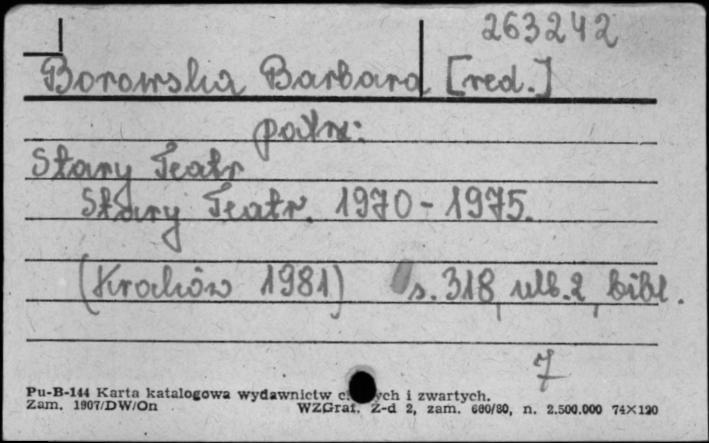 263242
Borowska Barbara [red.]
patrz:
Stary Teatr
Stary Teatr. 1970-1975.
(Kraków 1981) s. 318, nlb. 2, bibl.
7
Pu-B-144 Karta katalogowa wydawnictw ych i zwartych.
Zam. 1907/DW/On WZGraf. Z-d 2, zam. 660/80, n. 2.500.000 74×120